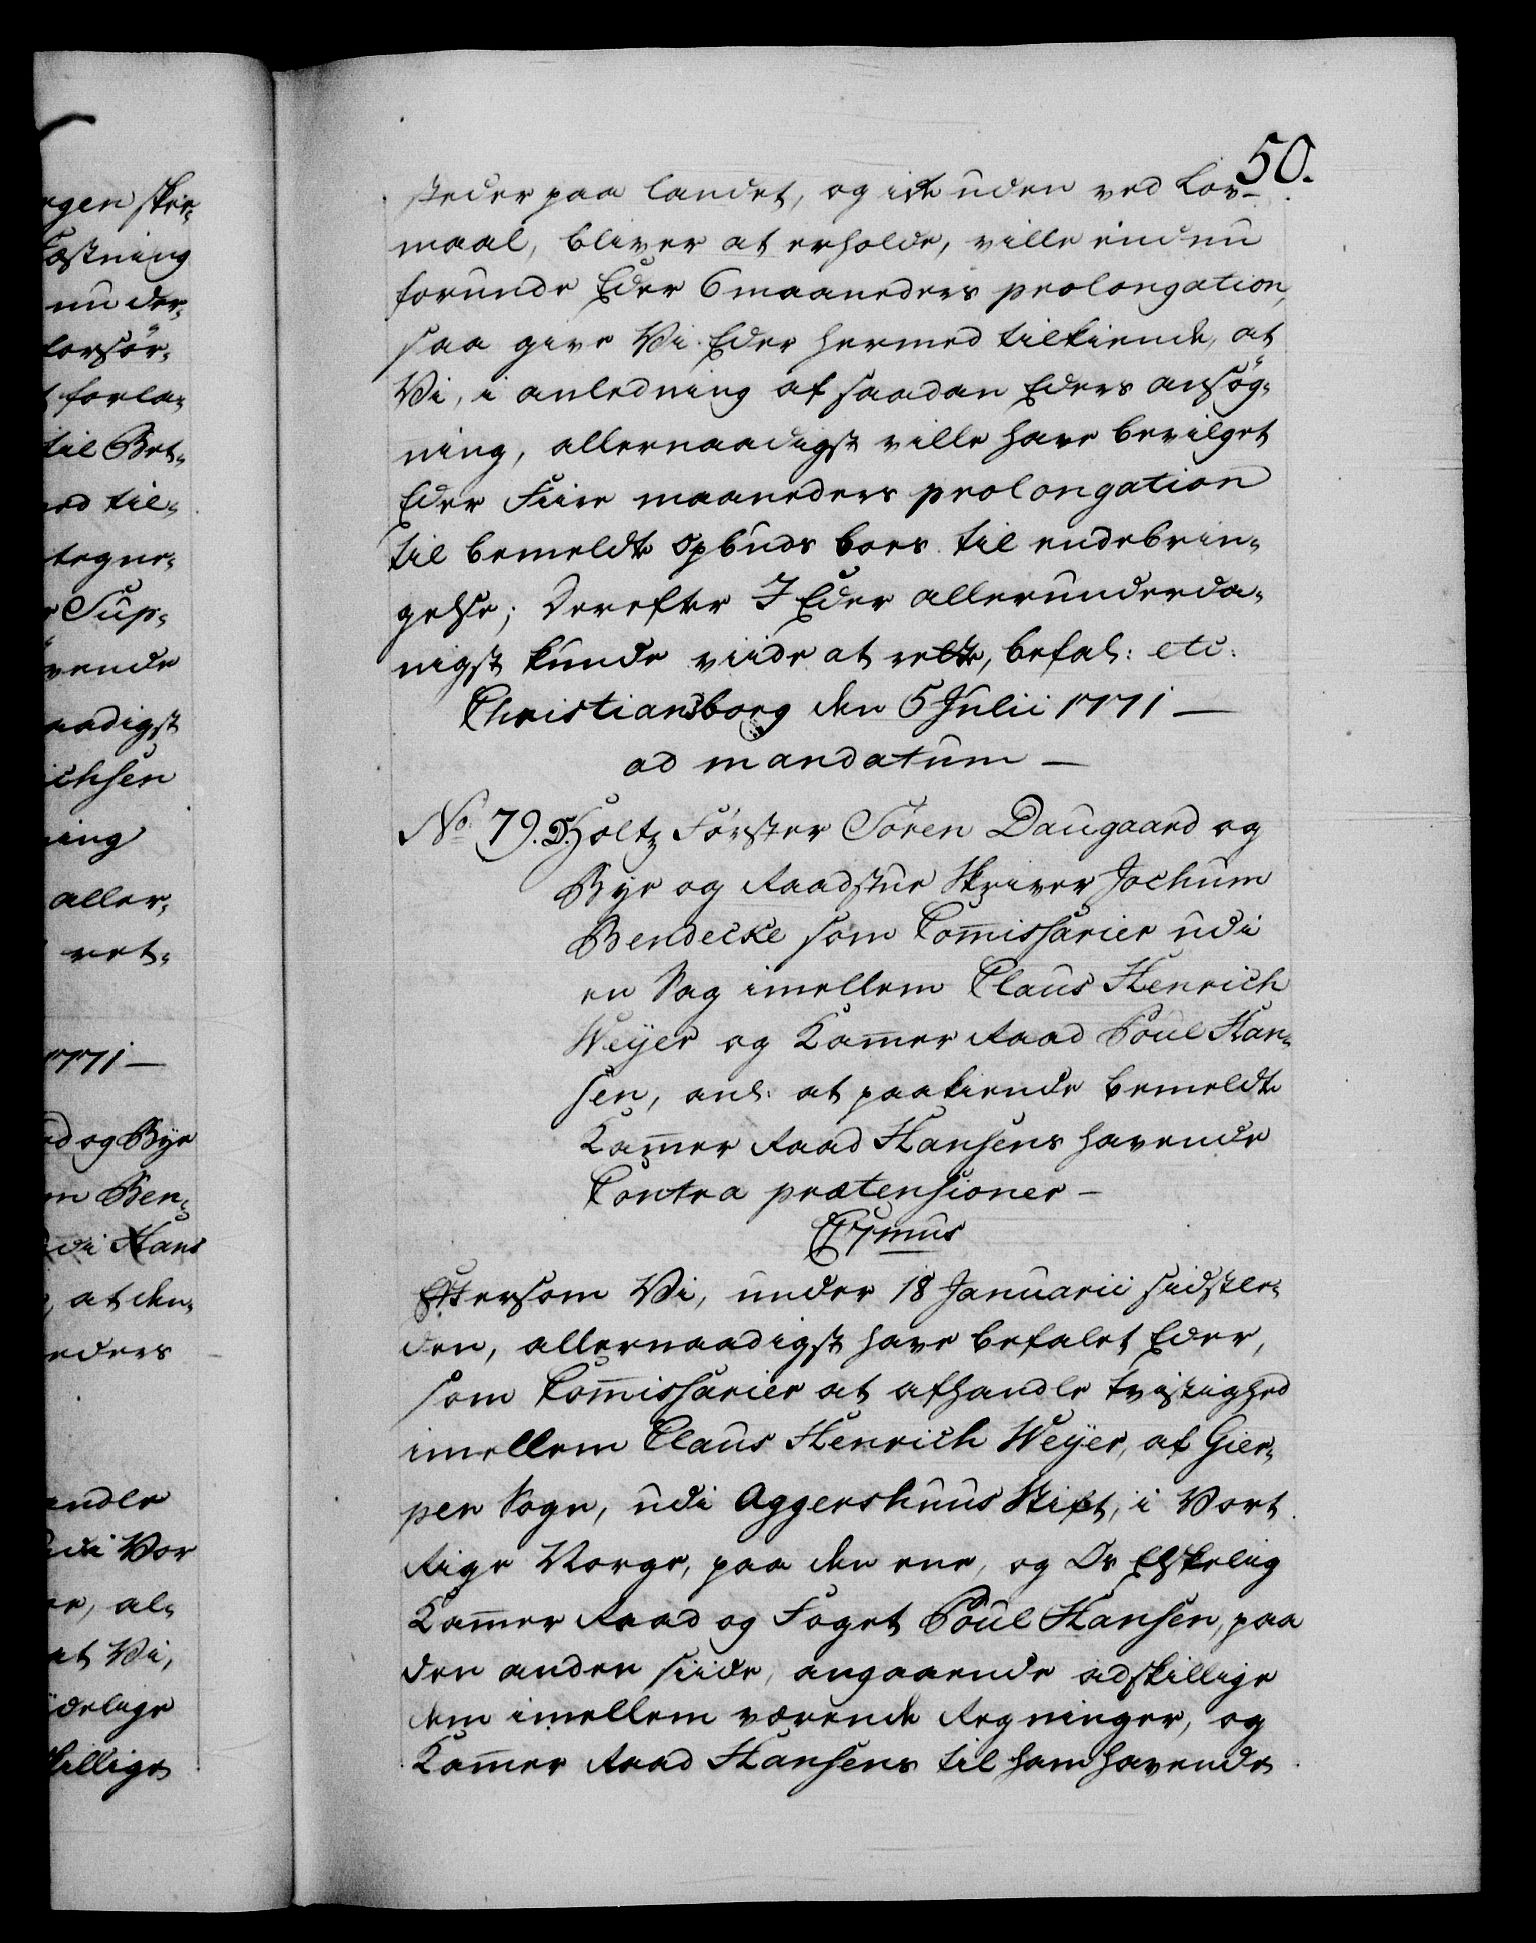 50.
steder paa landet, og icke uden ved Lov-
maal, bliver at erholde, ville endnu
forunde Eder 6 maaneders prolongation,
saa give Vi Eder hermed tilkiende, at
Vi, i anledning af saadan Eders ansøg-
ning, allernaadigst ville have bevilget
Eder Fiire maaneders prolongation
til bemeldte Opbuds boes til endebrin-
gelse; Derefter I Eder allerunderda-
nigst kunde viide at rette, befal: etc:
Christiansborg den 5 Julii 1771 —
ad mandatum —
No 79. D. Holtz Førster Søren Daugaard og
Bye og Raadstue Skriver Jochum
Bendecke som Com̄issarier udi
en Sag imellem Claus Henrich
Weÿer og Kam̄er Raad Poul Han-
sen, anl: at paakiende bemeldte
Kam̄er Raad Hansens havende
Contra prætensioner —
C7mus
Eftersom Vi, under 18 Januarii sidstle-
den, allernaadigst have befalet Eder,
som Com̄issarier at afhandle tvistighed
imellem Claus Henrich Weÿer, af Gier-
pen Sogn, udi Aggershuus Stift, i Vort
Rige Norge, paa den ene, og Os Elskelig
Kam̄er Raad og Foget Poul Hansen, paa
den anden siide, angaaende adskillige
dem imellem værende Regninger, og
Kam̄er Raad Hansens til ham havende
rgen sker-
Fæstning
nu der-
forsør-
forla-
til Bet-
ed til-
tegne-
Sup-
vende
aadigst
ichsen
ning
aller-
ret-
1771 —
ed og Bye
m Ben-
di Hans
, at den-
eders
andle
udi Vor
er, al-
at Vi,
ydelige
skillige